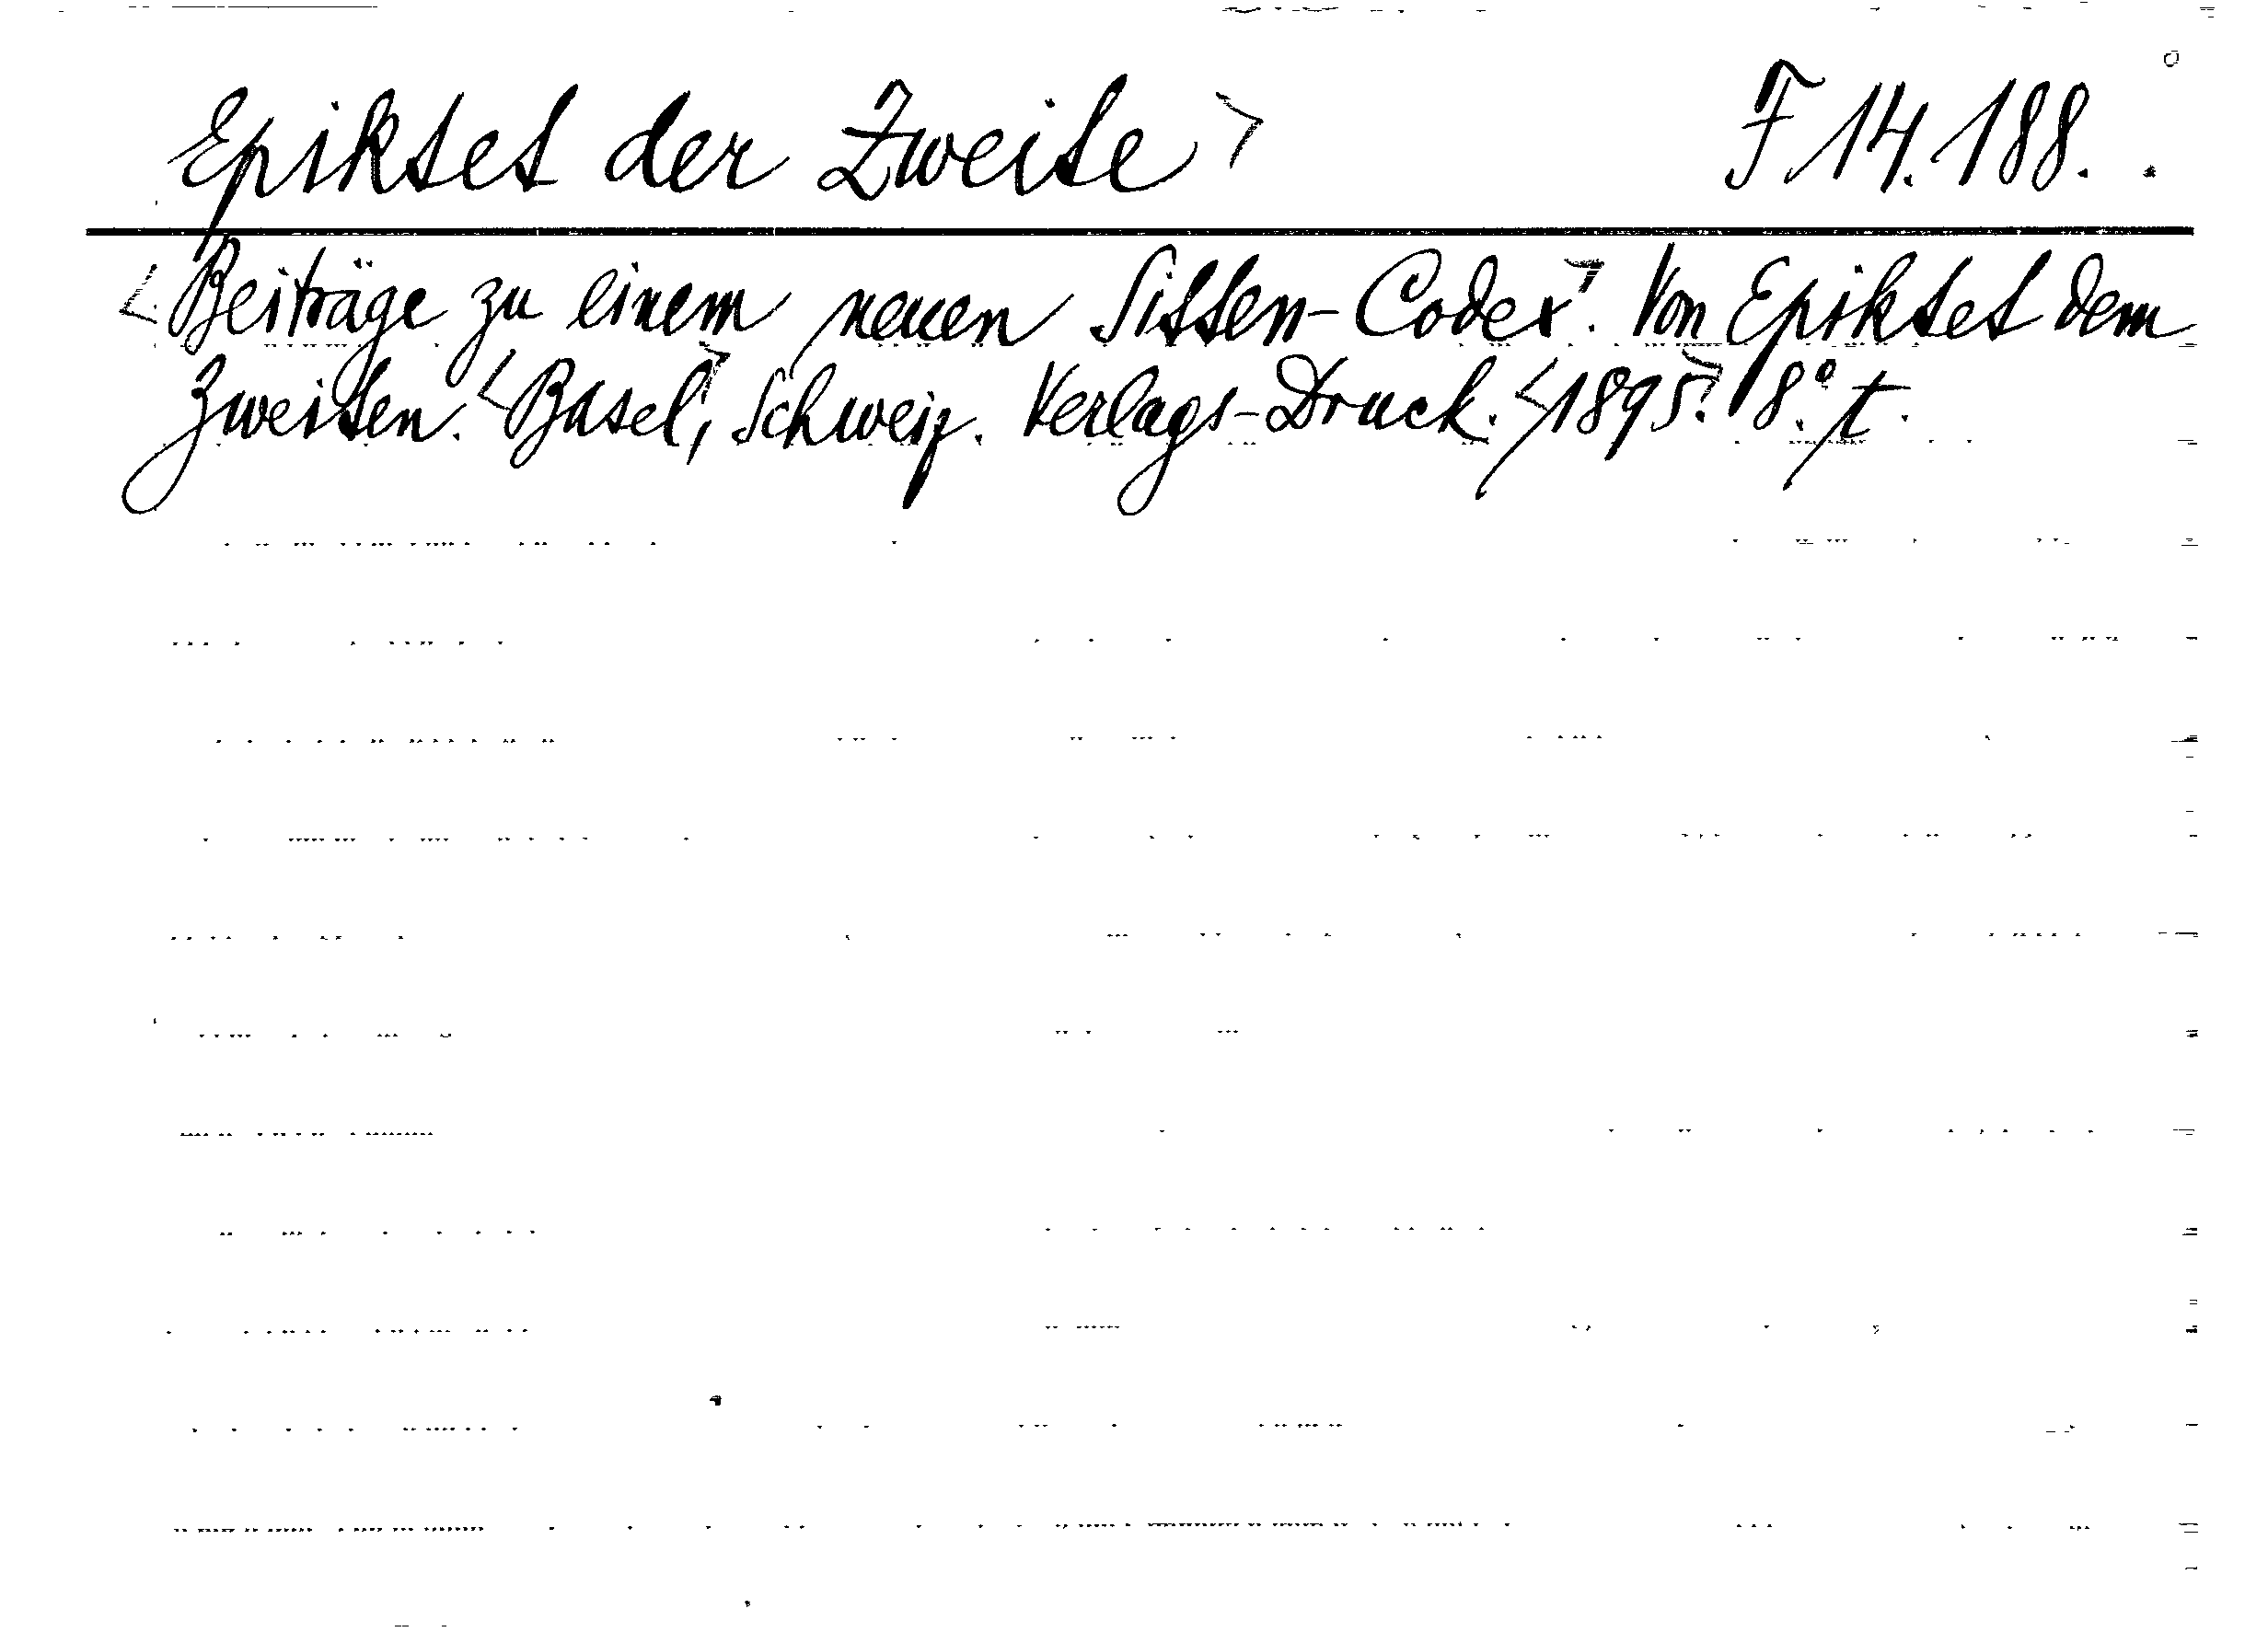 Epiktet der Zweite> F 14.188.
<Beiträge zu einem neuen Sitten-Codex>. Von Epiktet dem
Zweiten. <Basel>, Schweiz. Verlags-Druck. <1895>. 8.° t.